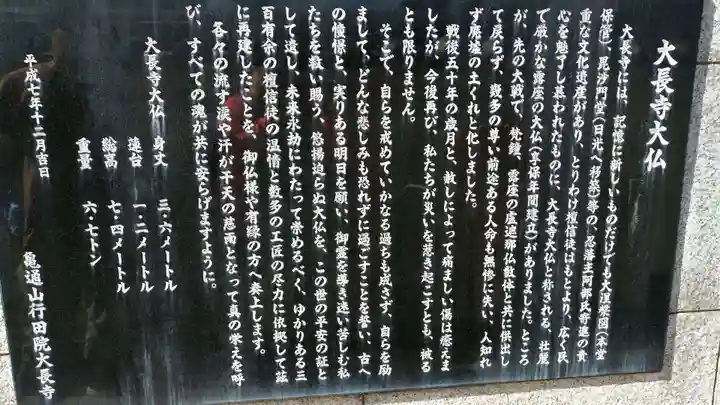 大長寺大仏
大長寺には、記憶に新しいものだけでも大涅槃図(本堂
保管)、毘沙門堂(日光へ移築)等の、忍藩主阿部氏寄進の貴
重な文化遺産があり、とりわけ檀信徒はもとより、広く民
心を魅了し慕われたものに、大長寺大仏と称される、壮麗
で厳かな露座の大仏(享保年間建立)がありました。ところ
が、先の大戦で、梵鐘、露座の盧遮那仏数体と共に供出し
て戻らず、幾多の尊い前途ある人命も無惨に失い、人知れ
ず廃墟の土くれと化しました。
戦後五十年の歳月と、赦しによって痛ましい傷は癒えま
したが、今後再び、私たちが災いを惹き起こすとも、被る
とも限りません。
そこで、自らを戒めていかなる過ちも成さず、自らを励
まして、どんな悲しみも恐れずに過ごすことを誓い、古へ
の憧憬と、実りある明日を願い、御霊を導き迷い苦しむ私
たちを救い賜う、悠揚迫らぬ大仏を、この世の平安の証と
して遺し、未来永劫にわたって崇めるべく、ゆかりある三
百有余の檀信徒の温情と数多の工匠の尽力に依拠して茲
に再建したことを、御仏様や有縁の方へ奏上します。
各々の流す涙や汗が干天の慈雨となって真の栄えを呼
び、すべての魂が共に安らげますように。
大長寺大仏 身丈 三・六メートル
蓮台 一・二メートル
総高 七・四メートル
重量 六・七トン
平成七年十二月吉日
亀通山行田院大長寺